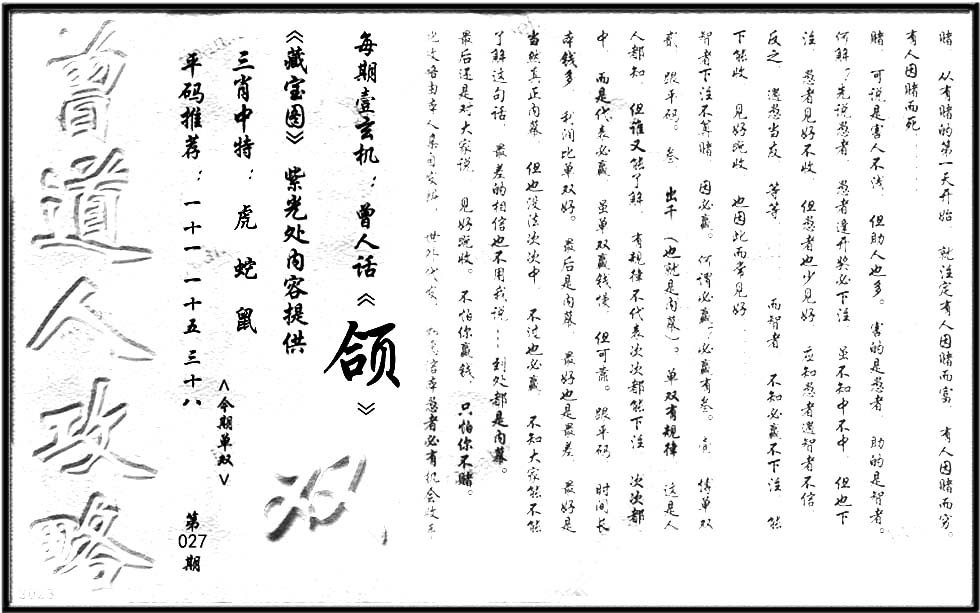 赌 从有赌的第一天开始 就注定有人因赌而富 有人因赌而穷。
有人因赌而死……
赌 可说是害人不浅 但助人也多。害的是愚者 助的是智者。
何解?先说愚者 愚者逢开奖必下注 虽不知中不中 但也下
注 愚者见好不收 但愚者也少见好 应知愚者遇智者不信
反之 遇愚当友 等等…… 而智者 不知必赢不下注 能
下能收 见好就收 也因此而常见好……
智者下注不真赌 因必赢。何谓必赢?必赢有叁。壹 博单双
贰 跟平码。叁 出千(也就是内幕)。单双有规律 这是人
人都知 但谁又能了解 有规律不代表次次都能下注 次次都
中 而是代表必赢 虽单双赢钱慢 但可靠。跟平码 时间长
本钱多 利润比单双好。最后是内幕 最好也是最差 最好是
当然真正内幕 但也没法次次中 不过也必赢 不知大家能不能
了解这句话 最差的相信也不用我说……到处都是内幕。
最后还是对大家说 见好就收。不怕你赢钱、只怕你不赌。
愚者必有机会收
每期壹玄机:曾人话《颌》
《藏宝图》紫光处内容提供
三肖中特:虎 蛇 鼠
平码推荐:一十一 一十五 三十八
<今期单双>
双
第027期
曾道人攻略
2023